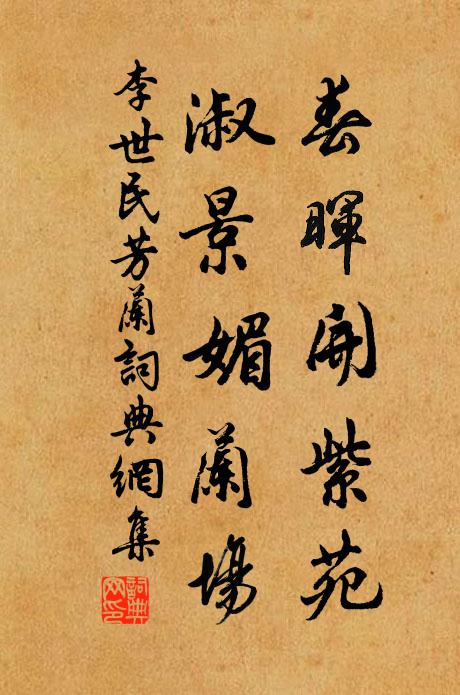 春暉開紫苑
淑景媚蘭場
李世民芳蘭詞典網集
詞典網印